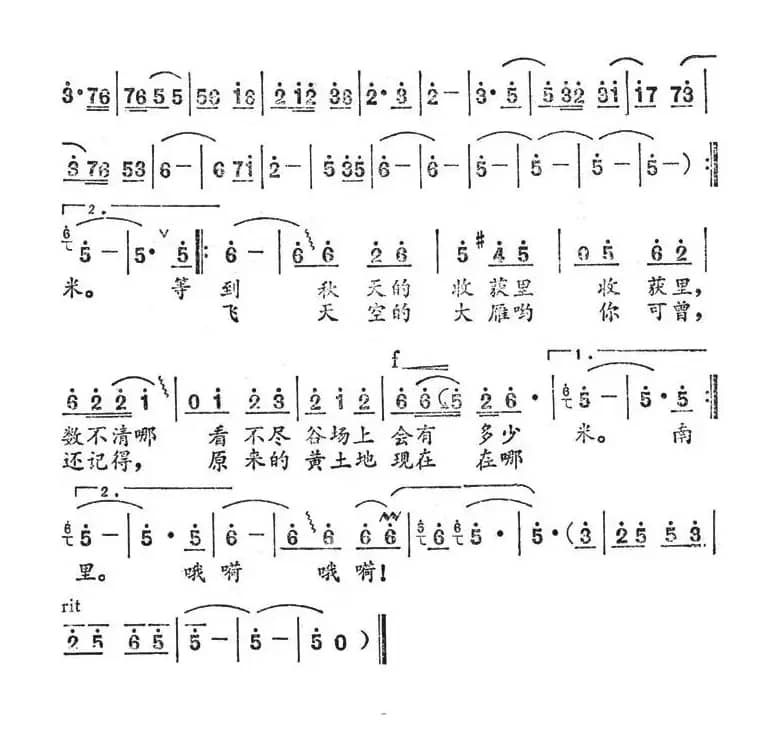 3·76|7655|56 16|2 12 36|2·3|2－|3·5|5 32 31|17 73|
3 76 53|6－|6 71|2－|5 35|6－|6－|5－|5－|5－|5－):‖
2.
5－|5· ∨ 5:‖6－|6 6 2 6|5 #4 5|0 5 6 2|
米。 等 到 秋 天的 收 获里 收 获里，
飞 天 空的 大 雁哟 你 可曾，
f 1.
6 2 2 1|0 1 2 3|2 1 2|6 6(5) 2 6·|5－|5·5:‖
数不清哪 看 不尽 谷场上 会有 多少 米。 南
还记得， 原 来的 黄土地 现在 在哪
2.
5－|5·5|6－|6 6 6 6|6 5·|5·(3|2 5 5 3|
里。 哦嗬 哦嗬！
rit
2 5 6 5|5－|5－|5 0)‖